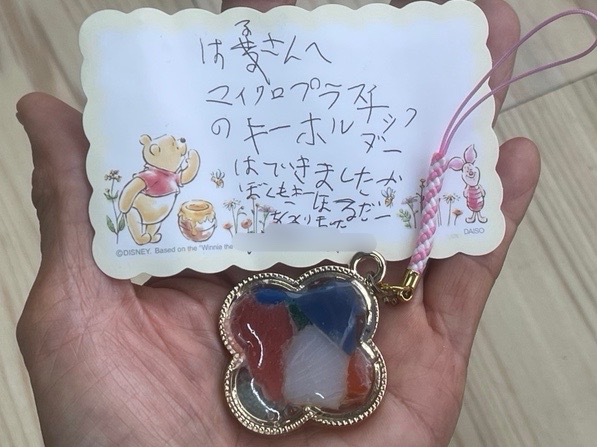 は　さんへ
マイクロプラスチック
のキーホルダー
はできましたか
ぼくもキーホるだー
©DISNEY. Based on the "Winnie the
DAISO